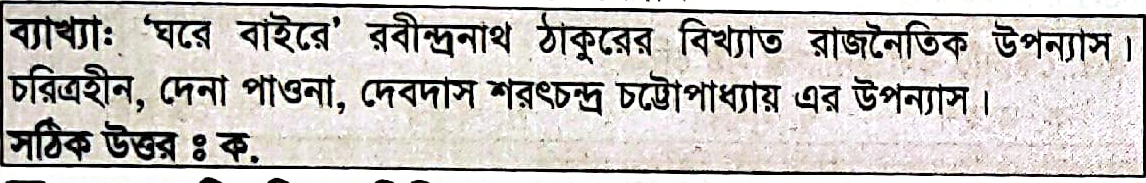 ব্যাখ্যাঃ 'ঘরে বাইরে' রবীন্দ্রনাথ ঠাকুরের বিখ্যাত রাজনৈতিক উপন্যাস।
চরিত্রহীন, দেনা পাওনা, দেবদাস শরৎচন্দ্র চট্টোপাধ্যায় এর উপন্যাস।
সঠিক উত্তর ঃ ক.